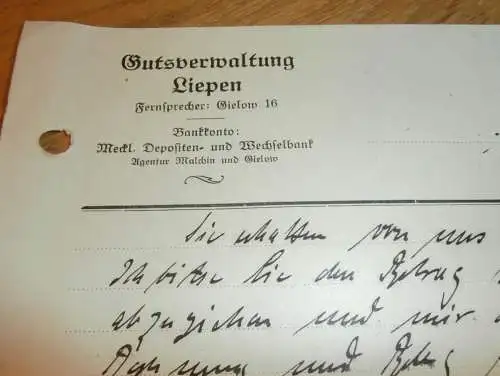 Gutsverwaltung
Liepen
Fernsprecher: Gielow 16
Bankkonto:
Meckl. Depositen- und Wechselbank
Agentur Malchin und Gielow
Sie erhalten von uns
Ich bitte Sie den Betrag
abzuziehen und mir
und